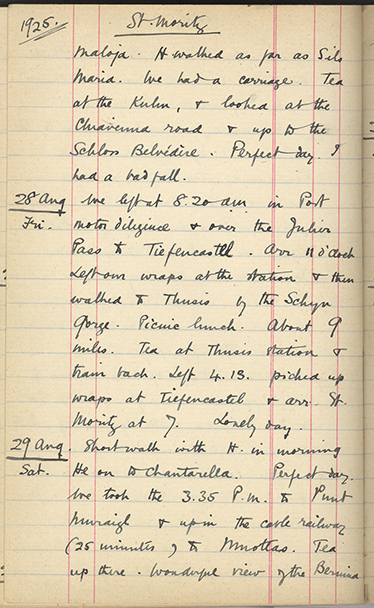 1925. St. Moritz
Maloja. H walked as far as Sils
Maria. We had a carriage. Tea
at the Kulm, & looked at the
Chiavenna road & up to the
Schloss Belvédère. Perfect day. I
had a bad fall.
28 Aug We left at 8.20 am in Post
Fri. motor diligence & over the Julier
Pass to Tiefencastel. Arr 11 o'clock
Left our wraps at the station & then
walked to Thusis by the Schyn
Gorge. Picnic lunch. About 9
miles. Tea at Thusis station &
train back. Left 4.13. picked up
wraps at Tiefencastel & arr. St.
Moritz at 7. Lovely day.
29 Aug. Short walk with H. in morning
Sat. He on to Chantarella. Perfect day.
We took the 3.35 P.m. to Punt
Muraigh & up in the cable railway
(25 minutes) to Muottas. Tea
up there. Wonderful view of the Bernina